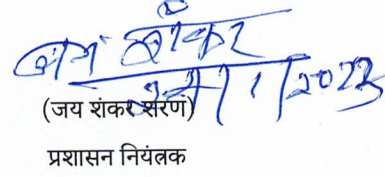 जय शंकर
2023
(जय शंकर शरण)
प्रशासन नियंत्रक